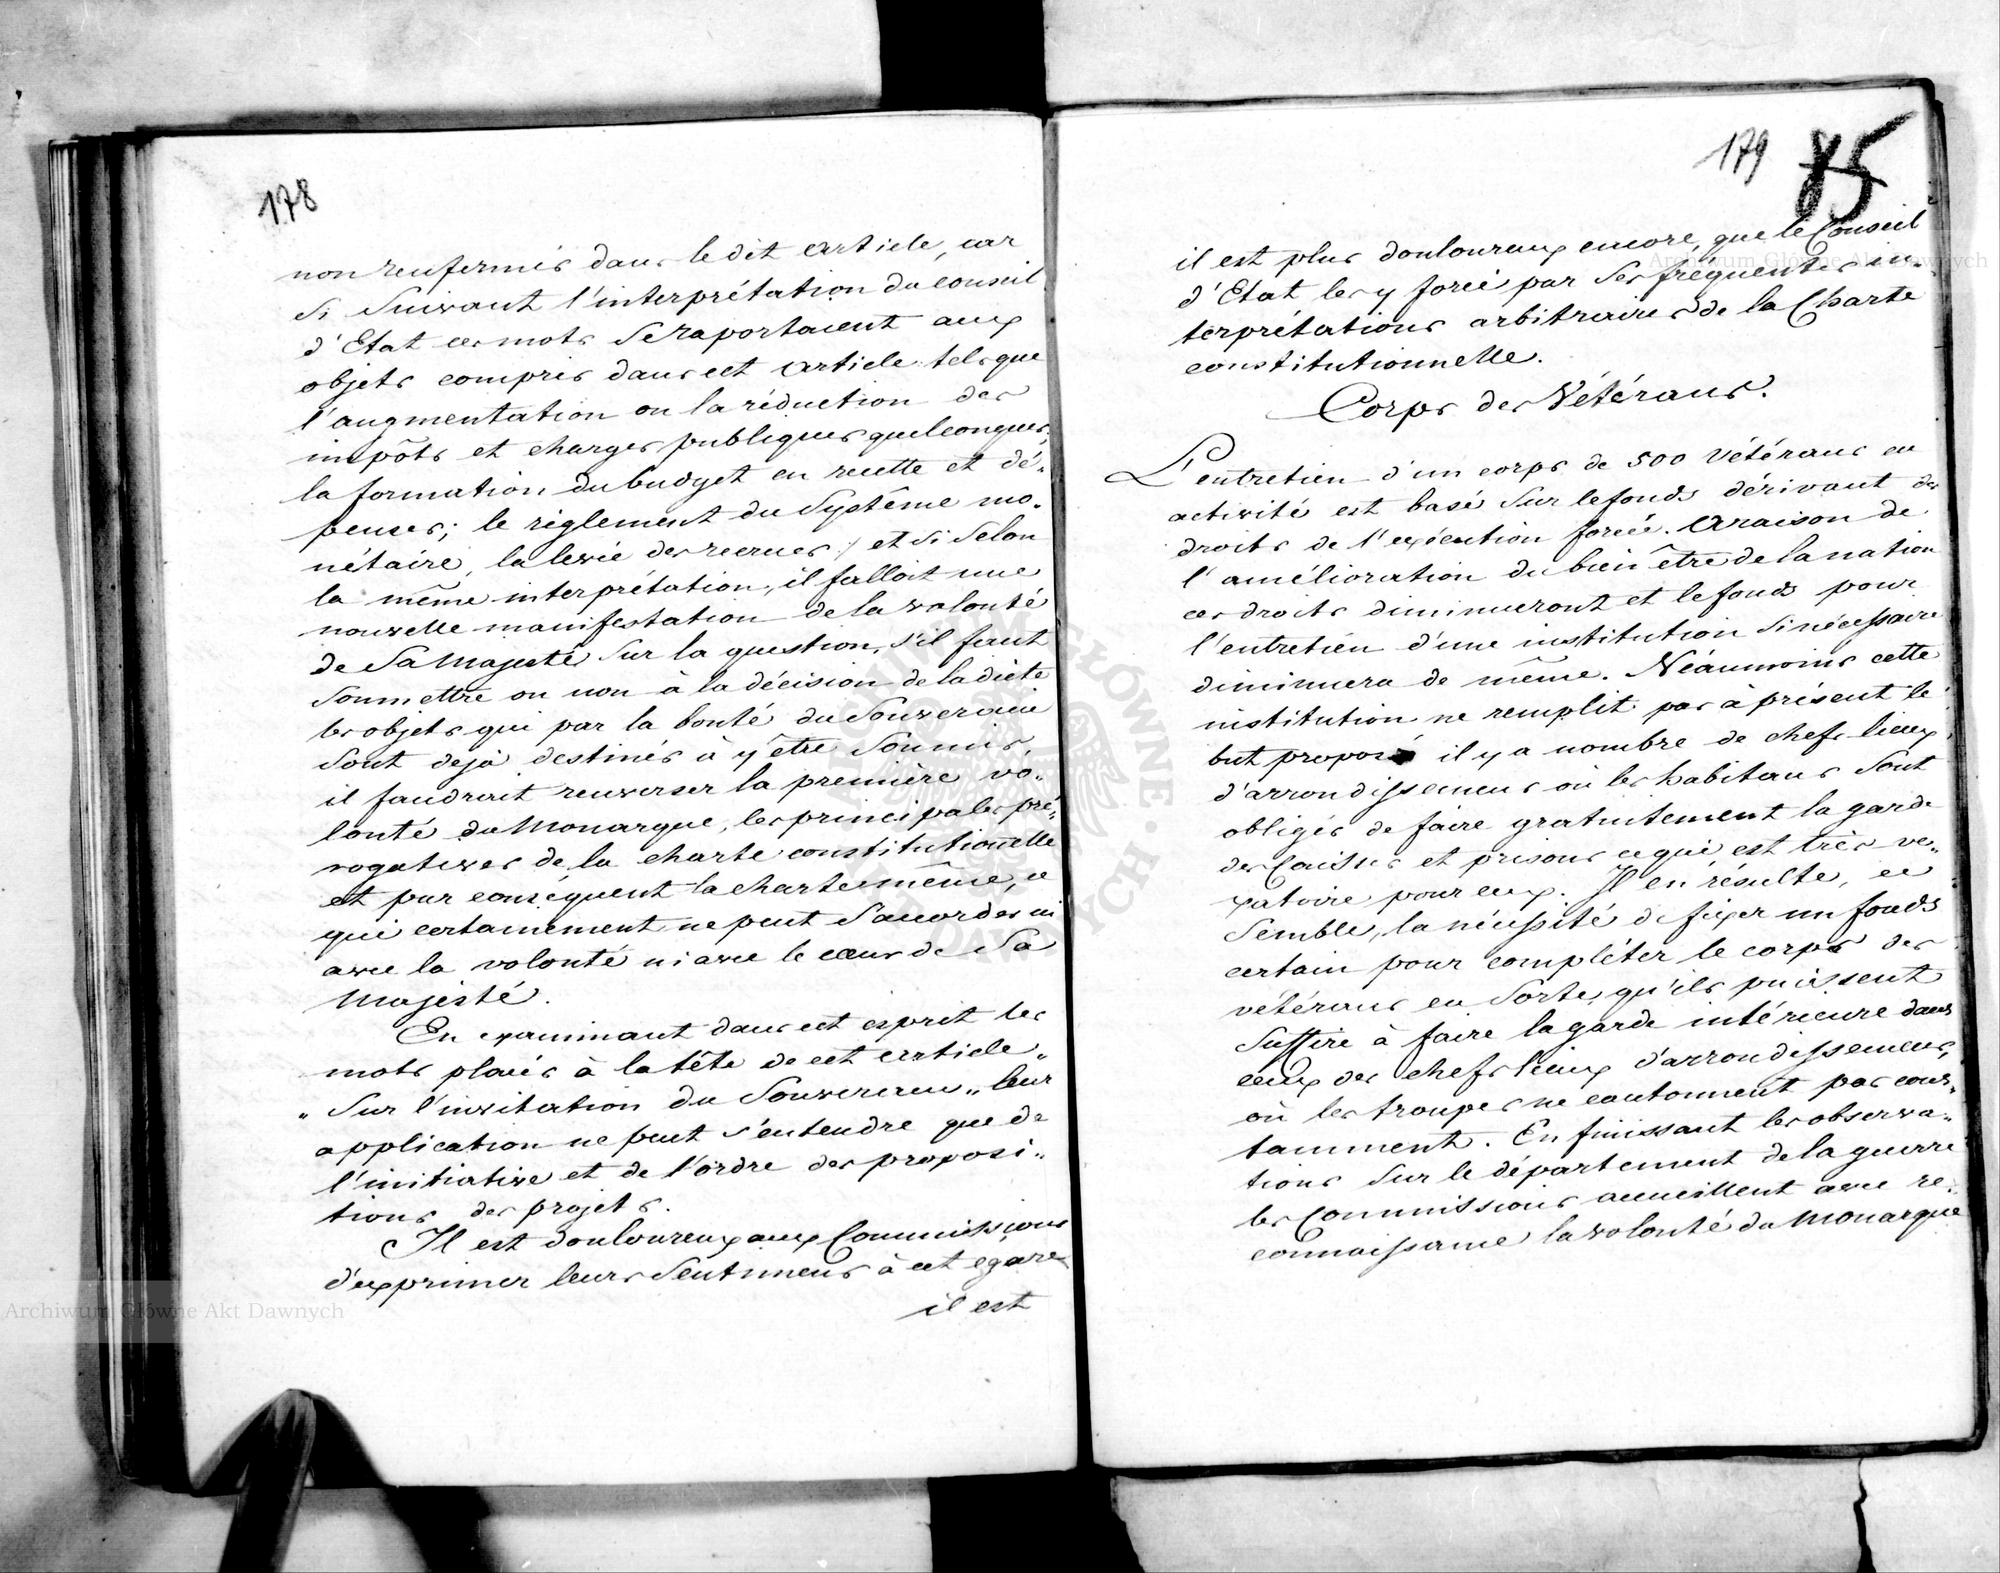 178
non renfermés dans le dit article, car
si suivant l'interprétation du conseil
d'Etat ces mots se raportaient aux
objets compris dans cet article tels que
l'augmentation ou la réduction des
impôts et charges publiques quelconques,
la formation du budget en recette et dé-
penses; le règlement du Système mo-
nétaire, la levée des recrues :/ et si selon
la même interprétation, il falloit une
nouvelle manifestation de la volonté
de Sa Majesté sur la question, s'il faut
soumettre ou non à la décision de la diète
les objets qui par la bonté du Souverain
sont dejà destinés à y être soumis,
il faudrait renverser la première vo-
lonté du Monarque, les principales pré-
rogatives de la charte constitutionelle
et par conséquent la charte même, ce
qui certainement ne peut s'accorder ni
avec la volonté ni avec le cœur de Sa
Majésté.
En examinant dans cet esprit les
mots placés à la tête de cet article „
„ Sur l'invitation du Souverain „ leur
application ne peut s'entendre que de
l'initiative et de l'ordre des proposi-
tions des projets.
Il est douloureux aux Commissions
d'exprimer leurs sentimens à cet egard
il est
179 85
il est plus douloureux encore, que le Conseil
d'Etat les y force par ses fréquentes in-
terprétations arbitraires de la Charte
constitutionnelle.
Corps des Vétérans.
L'entretien d'un corps de 500 Vétérans en
activité est basé sur le fonds dérivant des
droits de l'exécution forcée. A raison de
l'amélioration du bien être de la nation
ces droits diminueront et le fonds pour
l'entretien d'une institution si nécessaire
diminuera de même. Néaumoins cette
institution ne remplit pas à présent le
but proposé il y a nombre de chefs lieux
d'arrondissemens où les habitans sont
obligés de faire gratuitement la garde
des Caisses et prisons ce qui est très ve-
xatoire pour eux. Il en résulte, ce
semble, la nécessité de fixer un fonds
certain pour compléter le corps des
vétérans en sorte, qu'ils puissent
suffire à faire la garde intérieure dans
ceux des chefs lieux d'arrondissemens,
où les troupes ne cantonnent pas cons-
tamment. En finissant les observa-
tions sur le département de la guerre
les Commissions accueillent avec re-
connaissance la volonté du Monarque
Archiwum Główne Akt Dawnych
Archiwum Główne Akt Dawnych